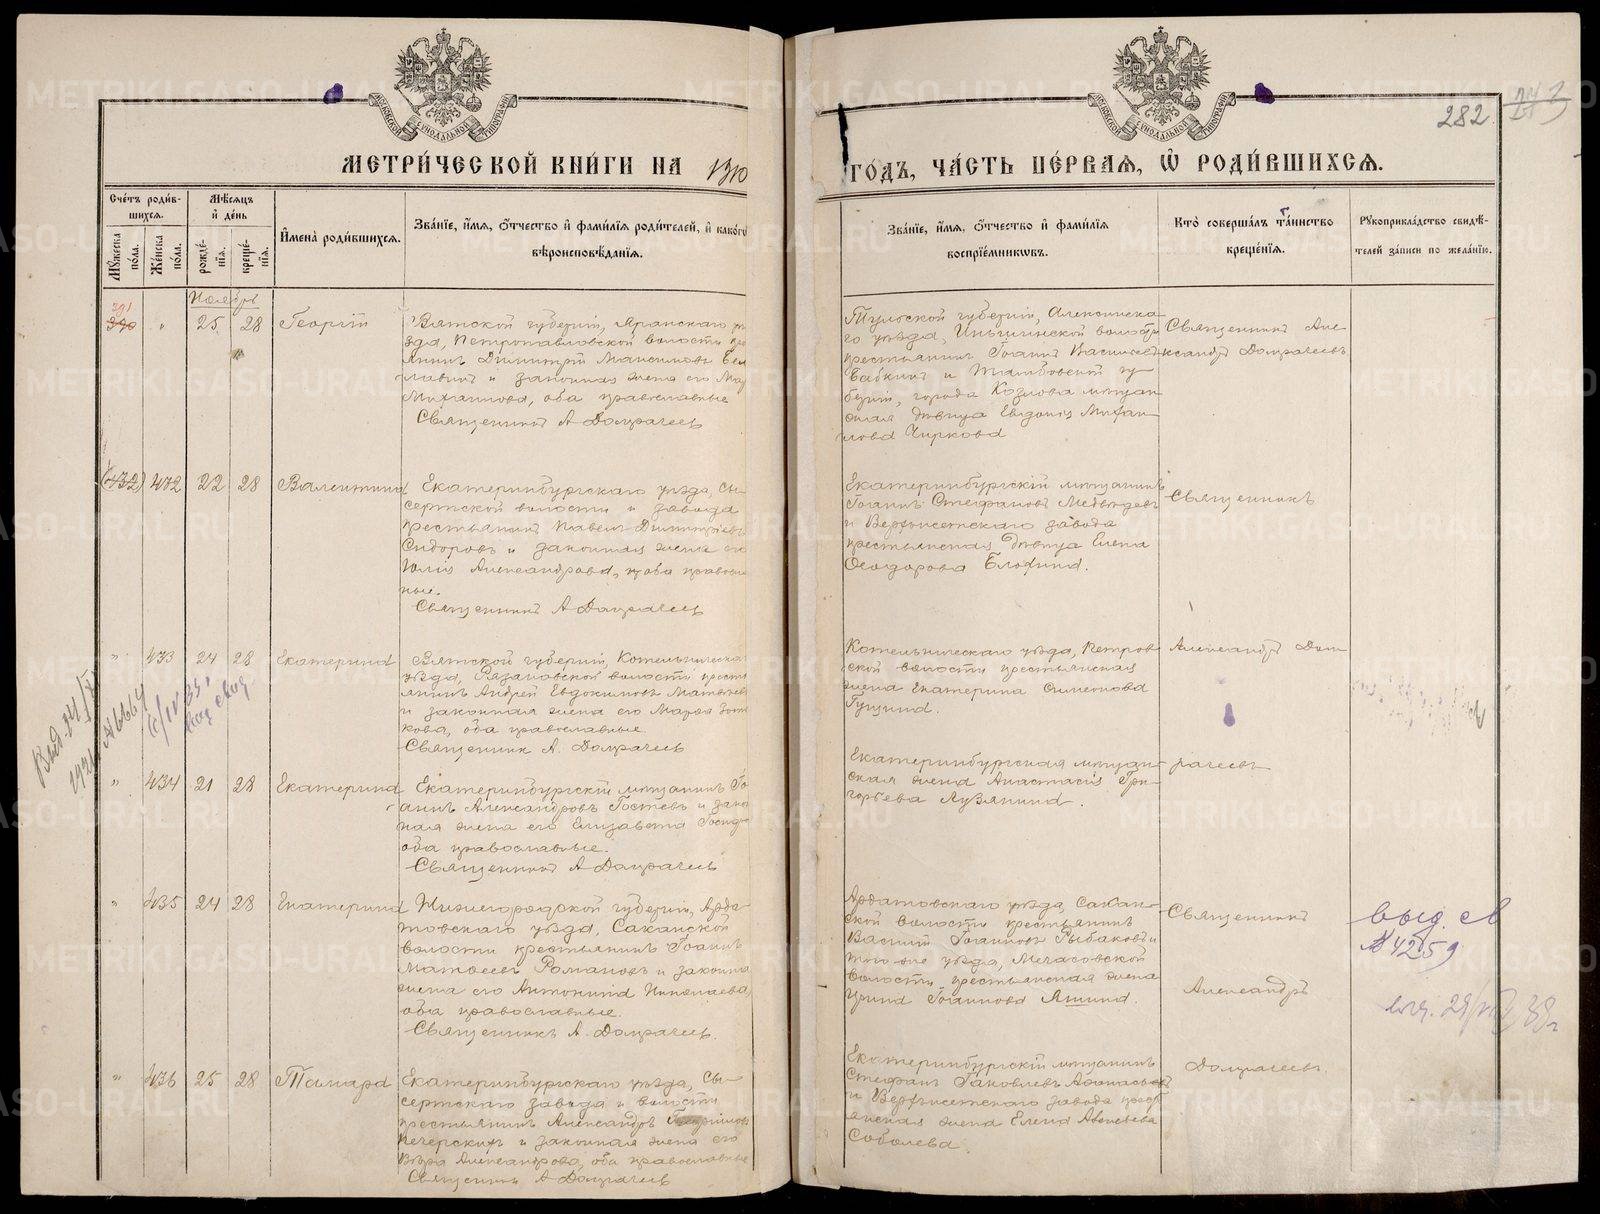 282
МЕТРИ́ЧЕСКОЙ КНИ́ГИ НА 1910
ГОДЪ, ЧА́СТЬ ПЕ́РВАѦ, Ѡ҆ РОДИ́ВШИХСѦ.
Сче́тъ роди́в-
шихсѧ.
Мѣ́сѧцъ
и҆ де́нь
Мꙋ́жеска по́ла.
Же́нска по́ла.
рожде́-
нїѧ.
креще́-
нїѧ.
И҆мена̀ роди́вшихсѧ.
Зва́нїе, и҆́мѧ, ѻ҆́тчество и҆ фами́лїѧ роди́телей, и҆ како́гѡ
вѣроисповѣ́данїѧ.
Зва́нїе, и҆́мѧ, ѻ҆́тчество и҆ фами́лїѧ
воспрїе́мникѡвъ.
Кто̀ соверша́лъ та́инство
креще́нїѧ.
Рꙋкоприкла́дство свидѣ́-
телей за́писи по жела́нїю.
Ноябрь
391
390 " 25 28 Георгій
Вятской губерніи, Яранскаго уѣ-
зда, Петропавловской волости кре
янинъ Димитрій Максимовъ
и законная жена его
Михаилова, оба православные
Священникъ А Домрачевъ
Тульской губерніи, Алексинска-
го уѣзда, волости
крестьянинъ Іоаннъ Васильевъ
Бабкинъ и Тамбовской гу-
берніи, города Козлова мѣщан
ская дѣвица Евдокія Михаи-
лова Чиркова
Священникъ Але-
ксандръ Домрачевъ
(432) 432 22 28 Валентина
Екатеринбургскаго уѣзда, Сы-
сертской волости и завода
крестьянинъ Павелъ Димитріевъ
Сидоровъ и законная жена его
Юлія Александрова, оба православ
ные.
Священникъ А Домрачевъ
Екатеринбургскій мѣщанинъ
Іоаннъ Стефановъ Медвѣдевъ
и Верхъисетскаго завода
крестьянская дѣвица Елена
Ѳеодорова Блохина.
Священникъ
" 433 24 28 Екатерина
Вятской губерніи, Котельническаго
уѣзда, Рязановской волости крест
янинъ Андрей Евдокимовъ Матвѣев
и законная жена его Марѳа
кова, оба православные
Священникъ А. Домрачевъ
Котельническаго уѣзда, Петров-
ской волости крестьянская
жена Екатерина Симеонова
Гущина.
Александръ Дом-
Выд. 24/X
192 № 6664
" 434 21 28 Екатерина
Екатеринбургскій мѣщанинъ Іо-
аннъ Александровъ Гостевъ и закон
ная жена его Елизавета
оба православные.
Священникъ А Домрачевъ
Екатеринбургская мѣщан-
ская жена Анастасія Гри-
горьева Лузянина.
рачевъ
" 435 24 28 Екатерина
Нижегородской губерніи, Арда-
товскаго уѣзда, Саканской
волости крестьянинъ Іоаннъ
Матвеевъ Романовъ и законная
жена его Антонина Николаева,
оба православные.
Священникъ А. Домрачевъ.
Ардатовскаго уѣзда, Сакан-
ской волости крестьянинъ
Василій Іоанновъ Рыбаковъ и
того-же уѣзда, Мечасовской
волости, крестьянская жена
Ирина Іоаннова Яшина.
Священникъ
Александръ
выд. св
№ 4259
" 436 25 28 Тамара
Екатеринбургскаго уѣзда, Сы-
сертскаго завода и волости
крестьянинъ Александръ
Печерскихъ и законная жена его
Вѣра Александрова, оба православные
Священникъ А Домрачевъ
Екатеринбургскій мѣщанинъ
Стефанъ Іаковлевъ Аѳанасьевъ
и Верхъисетскаго завода крест
янская жена Елена Алексѣева
Соболева.
Домрачевъ.
METRIKI.GASO-URAL.RU